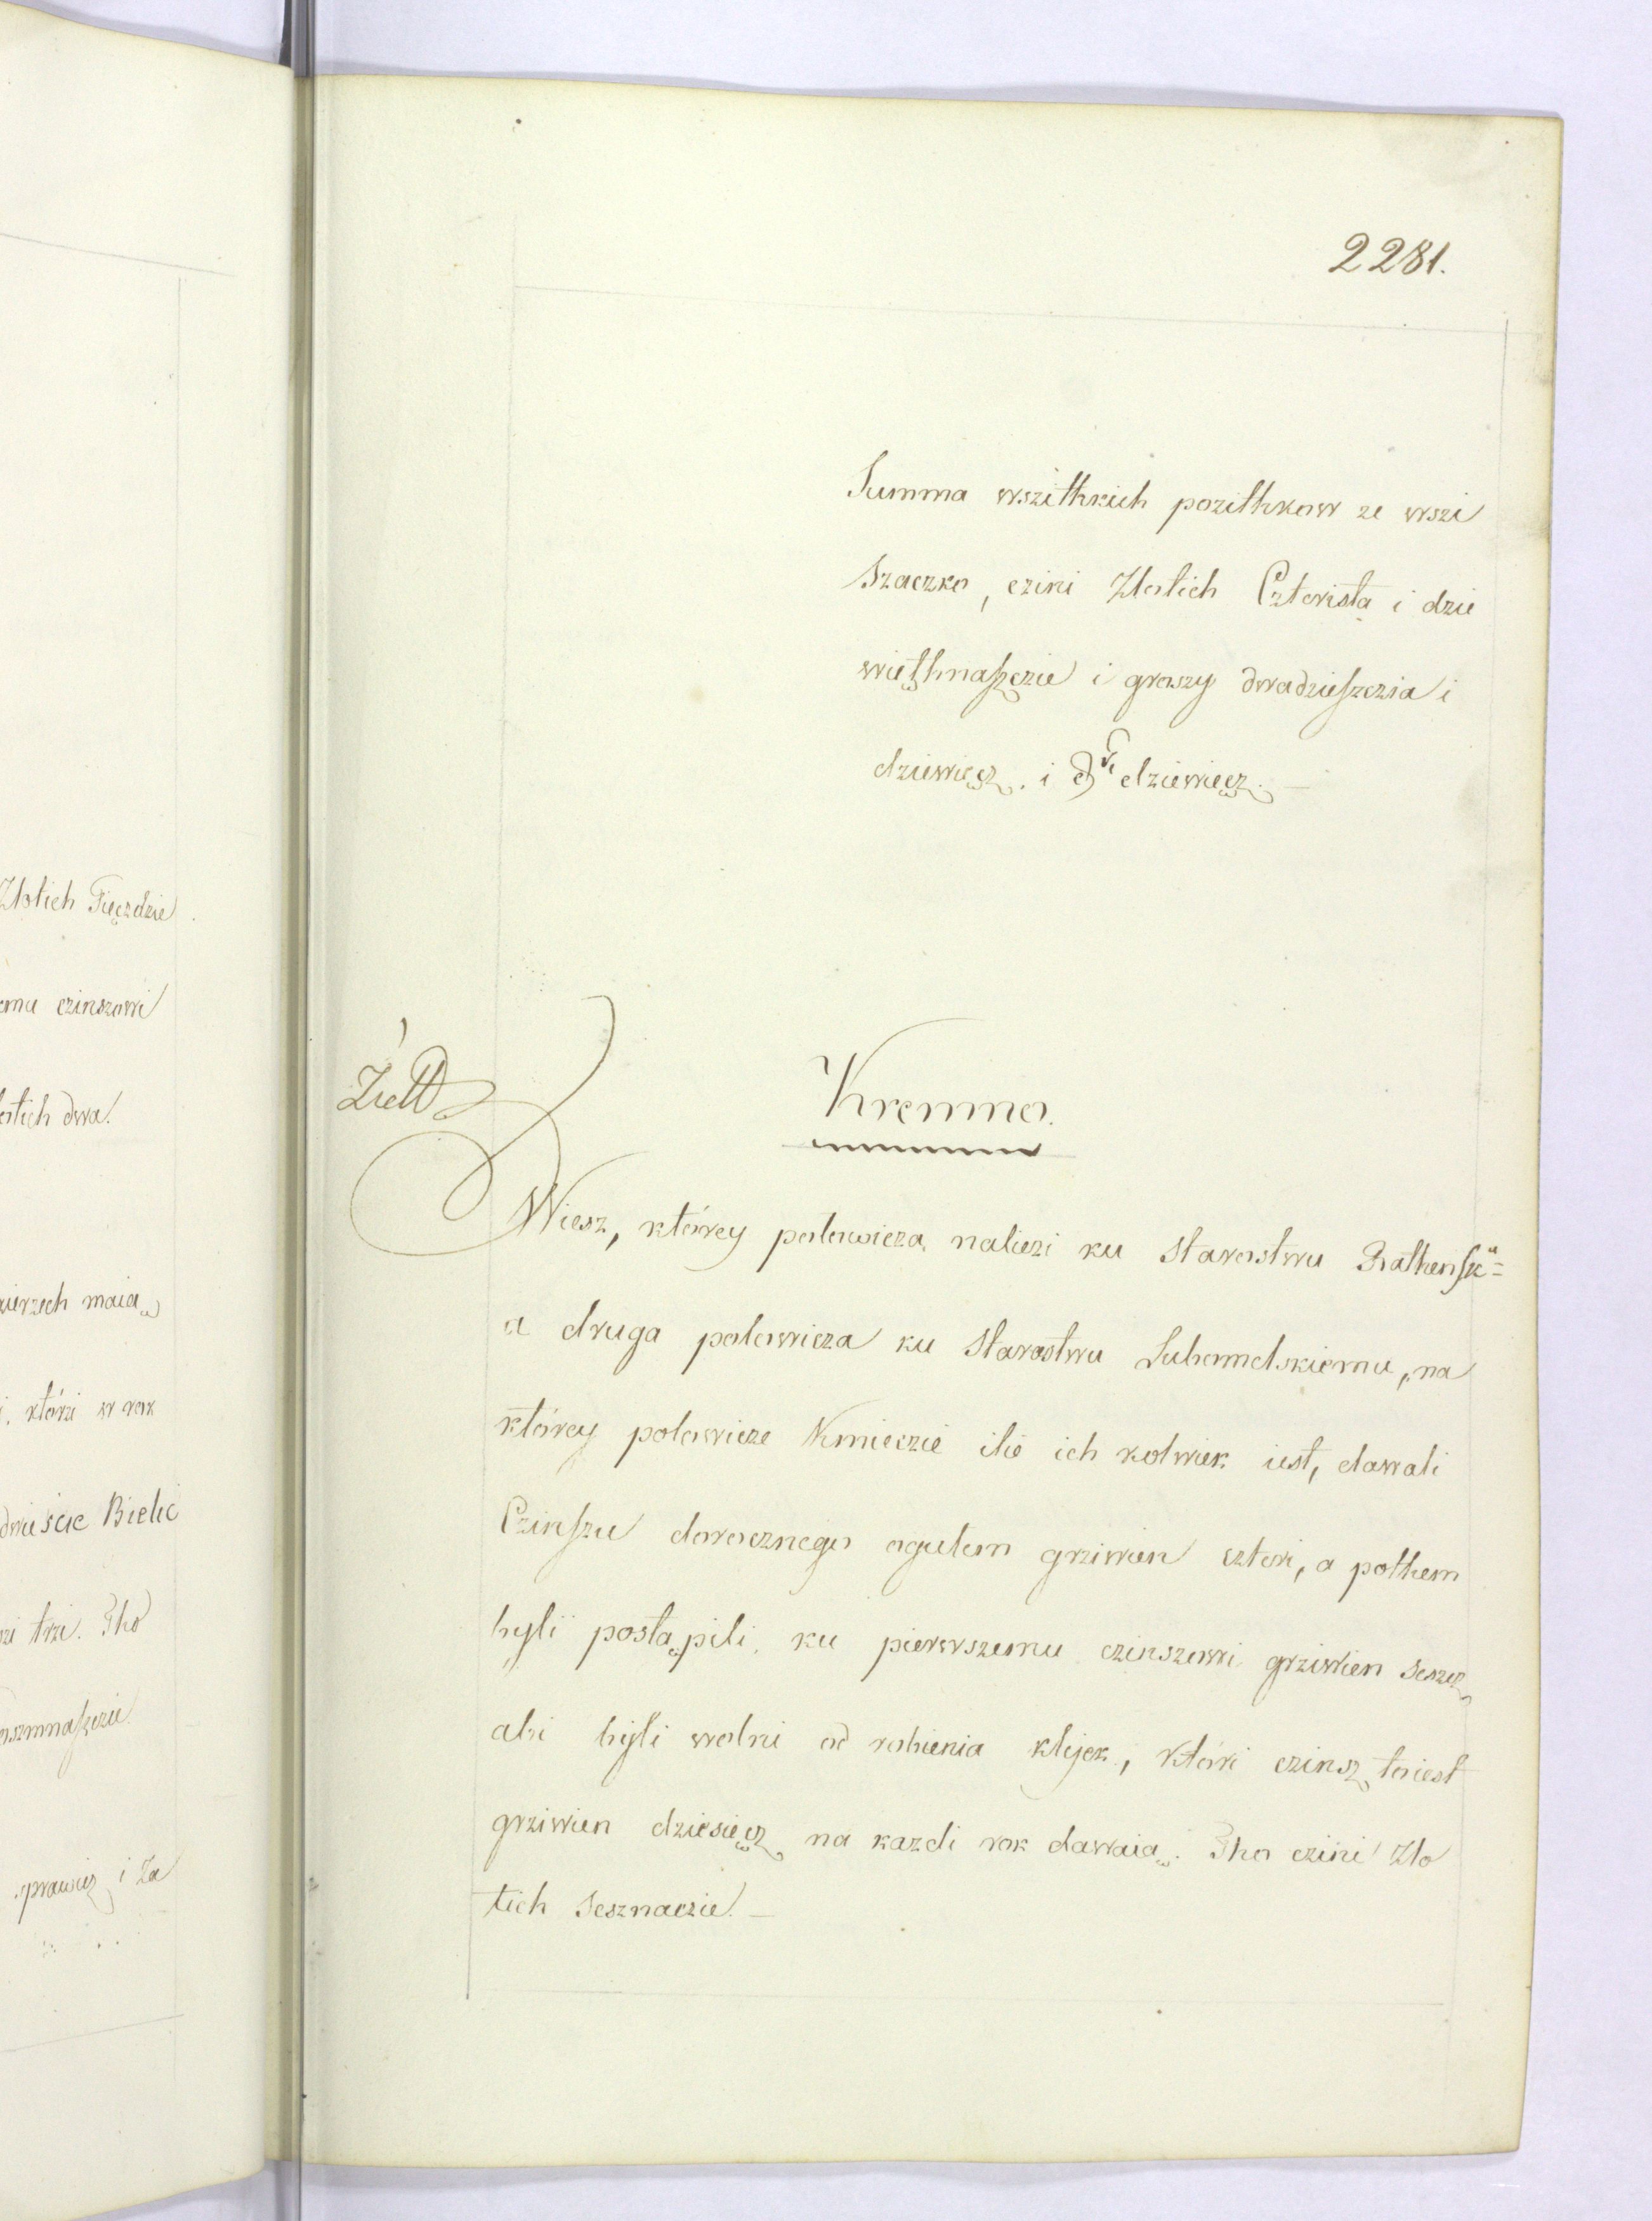 Złotich Pięczdzie
emu czinszowi
łotich dwa.
maią
którzi w rok
dwieście Bielic
trzi. Tho
oszmnaſzczie
sprawież i Za
2281.
Summa wszithkich pozithkow ze wszi
Szaczko, czini Złotich Czterista i dzie
wiethnaſzczie i groszy dwadzieſzczia i
dziewięcz. i dziewięcz. —
Kremno.
Wiesz, którey połowicza nalieżi ku Starostwu Rathenſkᵘ=
a druga połowicza ku Starostwu Lubomelskiemu, na
którey połowicze Kmieczie ilie ich kolwiek iest, dawali
Czinſzu dorocznego ogułem grziwien czteri, a pothem
byli postąpili ku pierwszemu czinszowi grziwien szescz
abi byli wolni od robienia klijek, któri czinsz to iest
grziwien dziesięcz na każdi rok dawaią. Tho czini Zło
tich szesznaczie. —